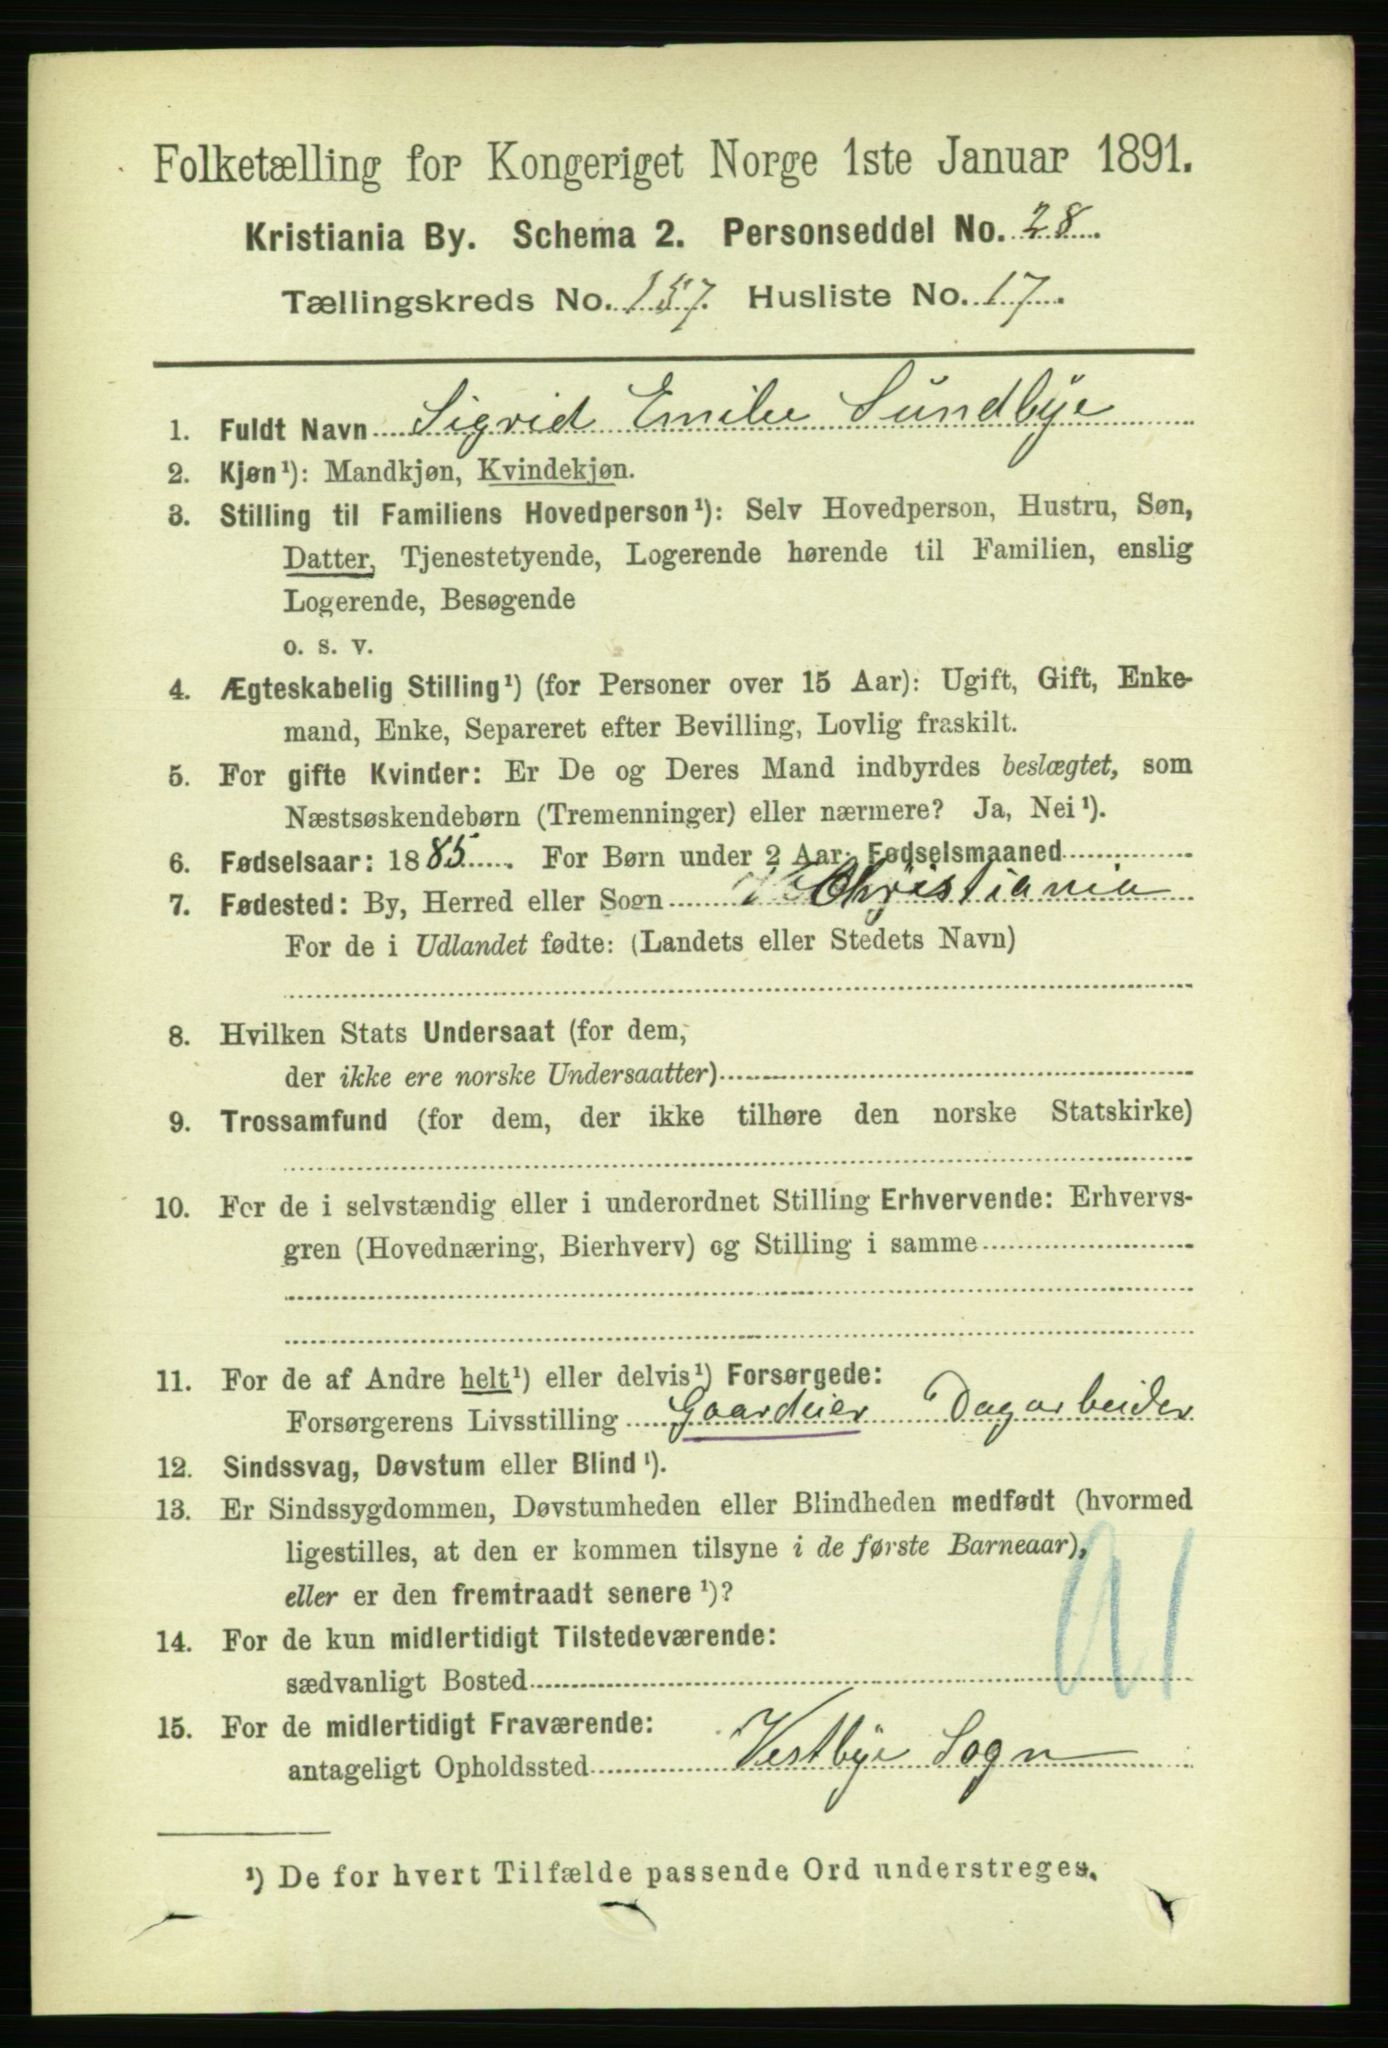 Folketælling for Kongeriget Norge 1ste Januar 1891.
Kristiania By. Schema 2. Personseddel No. 28
Tællingskreds No. 157. Husliste No. 17.
1. Fuldt Navn Sigrid Emilie Sundbye
2. Kjøn¹): Mandkjøn, Kvindekjøn.
3. Stilling til Familiens Hovedperson¹): Selv Hovedperson, Hustru, Søn,
Datter, Tjenestetyende, Logerende hørende til Familien, enslig
Logerende, Besøgende
o. s. v.
4. Ægteskabelig Stilling¹) (for Personer over 15 Aar): Ugift, Gift, Enke-
mand, Enke, Separeret efter Bevilling, Lovlig fraskilt.
5. For gifte Kvinder: Er De og Deres Mand indbyrdes beslægtet, som
Næstsøskendebørn (Tremenninger) eller nærmere? Ja, Nei¹).
6. Fødselsaar: 1885. For Børn under 2 Aar: Fødselsmaaned
7. Fødested: By, Herred eller Sogn Christiania
For de i Udlandet fødte: (Landets eller Stedets Navn)
8. Hvilken Stats Undersaat (for dem,
der ikke ere norske Undersaatter)
9. Trossamfund (for dem, der ikke tilhøre den norske Statskirke)
10. For de i selvstændig eller i underordnet Stilling Erhvervende: Erhvervs-
gren (Hovednæring, Bierhverv) og Stilling i samme
11. For de af Andre helt¹) eller delvis¹) Forsørgede:
Forsørgerens Livsstilling Gaardeier Dagarbeider
12. Sindssvag, Døvstum eller Blind¹).
13. Er Sindssygdommen, Døvstumheden eller Blindheden medfødt (hvormed
ligestilles, at den er kommen tilsyne i de første Barneaar),
eller er den fremtraadt senere¹)?
14. For de kun midlertidigt Tilstedeværende:
sædvanligt Bosted
15. For de midlertidigt Fraværende:
antageligt Opholdssted Vestbye Sogn
¹) De for hvert Tilfælde passende Ord understreges.